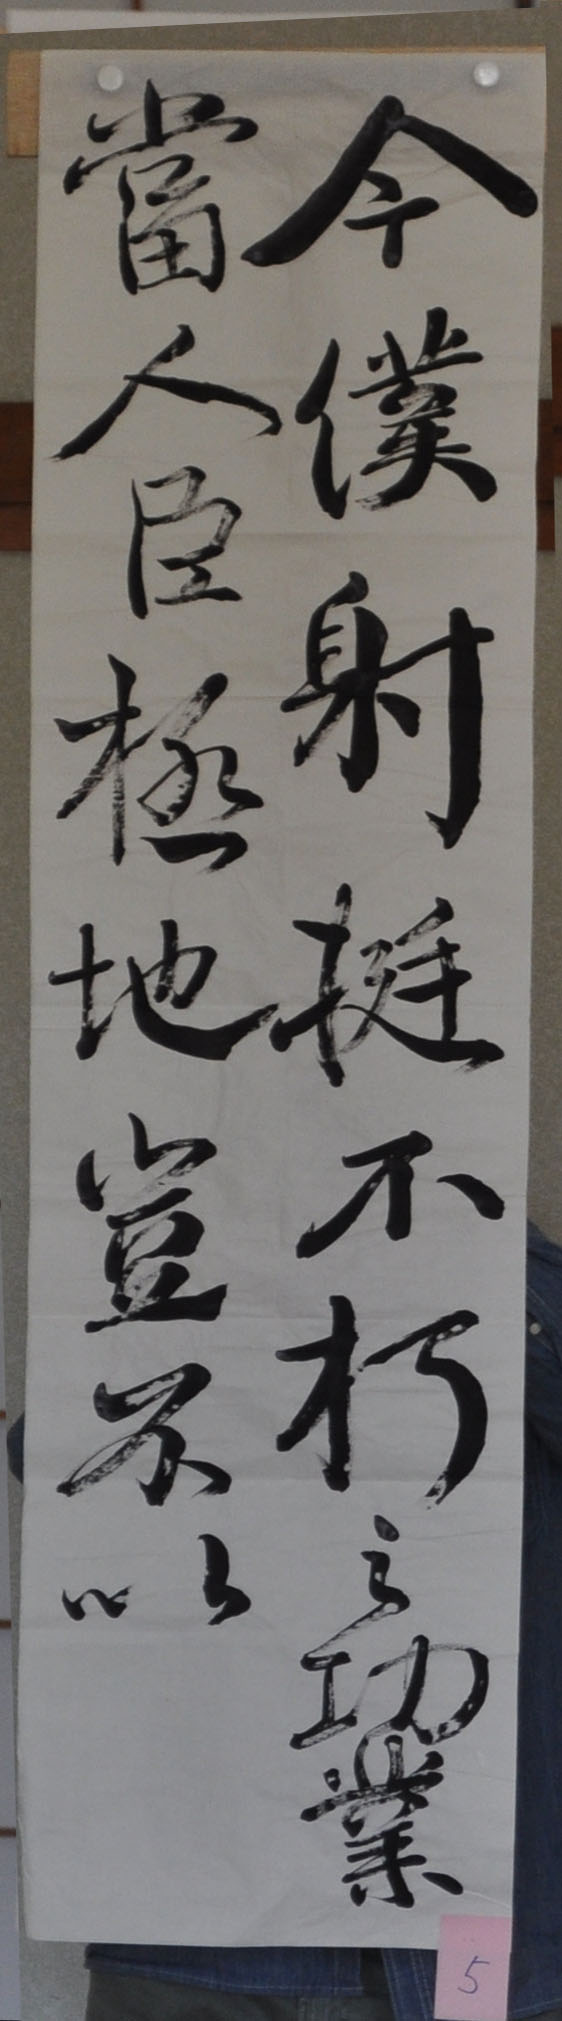 今僕射挺不朽之功業
當人臣極地豈不以
5